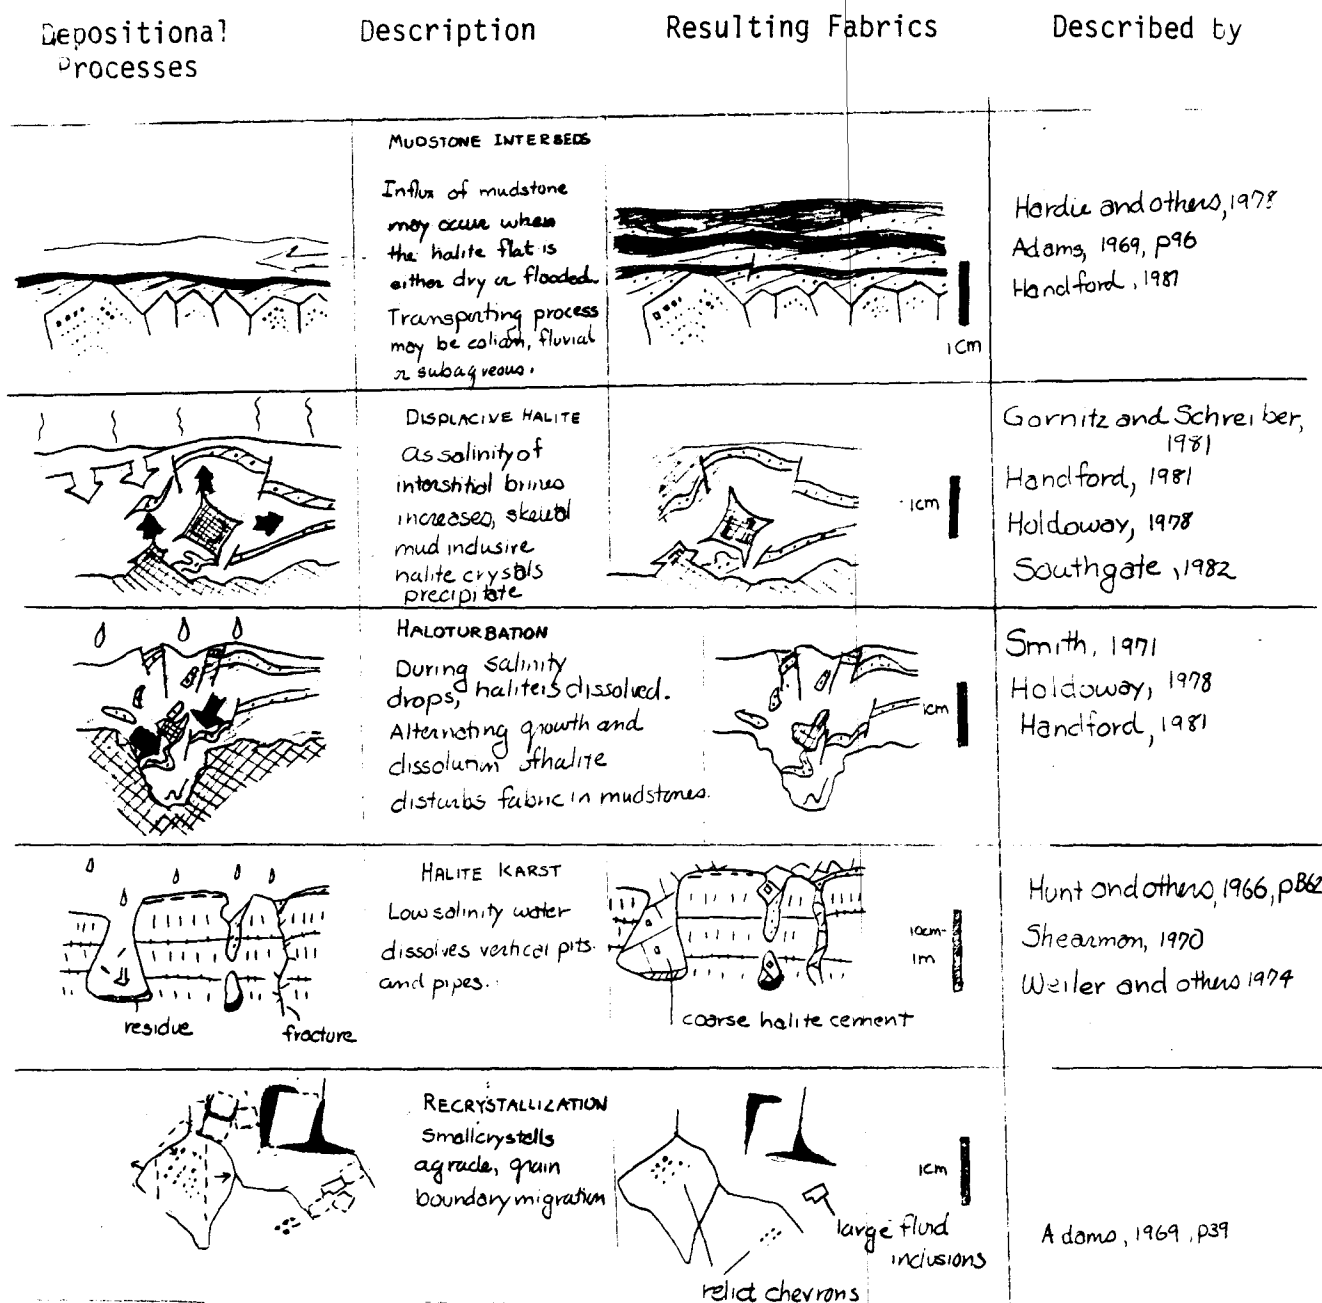 Depositional Processes
Description
Resulting Fabrics
Described by
MUDSTONE INTERBEDS
Influx of mudstone
may occur when
the halite flat is
either dry or flooded.
Transporting process
may be eolian, fluvial
or subaqueous.
1cm
Hardie and others, 1978
Adams, 1969, p96
Handford, 1981
DISPLACIVE HALITE
As salinity of
interstitial brines
increases, skeletal
mud inclusive
halite crystals
precipitate
1cm
Gornitz and Schreiber,
1981
Handford, 1981
Holdoway, 1978
Southgate, 1982
HALOTURBATION
During salinity
drops, halite is dissolved.
Alternating growth and
dissolution of halite
disturbs fabric in mudstones.
1cm
Smith, 1971
Holdoway, 1978
Handford, 1981
HALITE KARST
Low salinity water
dissolves vertical pits
and pipes.
residue
fracture
coarse halite cement
10cm-
1m
Hunt and others, 1966, pB62
Shearman, 1970
Weiler and others 1974
RECRYSTALLIZATION
Small crystals
agrade, grain
boundary migration
1cm
large fluid
inclusions
relict chevrons
Adams, 1969, p39